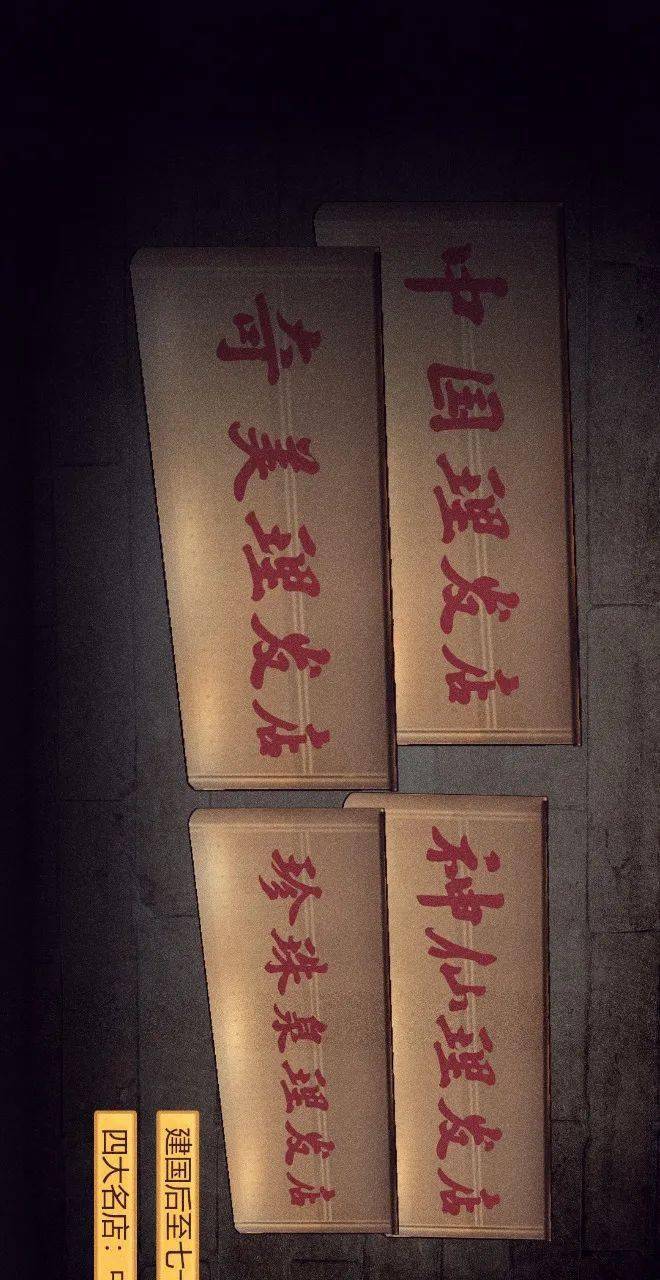 中国理发店
奇美理发店
神仙理发店
珍珠泉理发店
建国后至七
四大名店：